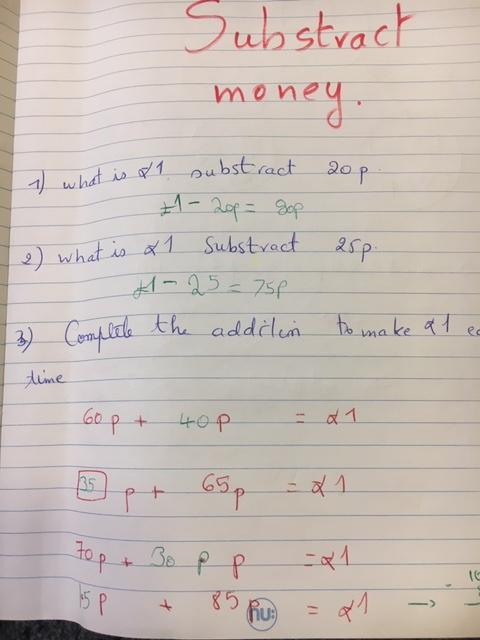 Substract
money.
1) what is £1 substract 20p.
£1 - 20p = 80p
2) what is £1 Substract 25p.
£1 - 25 = 75p
3) Complete the addition to make £1
time
60p + 40p = £1
35 p + 65p = £1
70p + 30 p p = £1
15p + 85p = £1 →
nu: